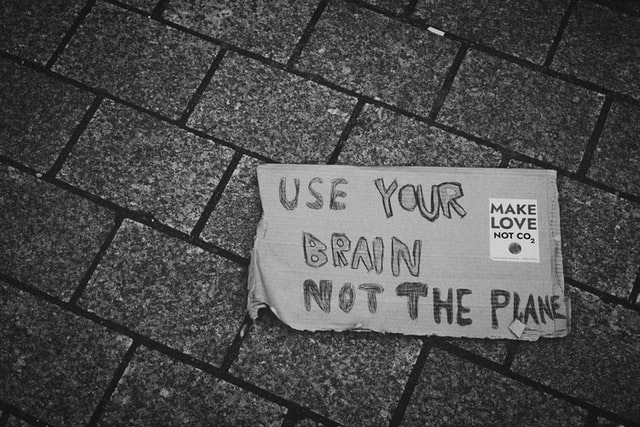 USE YOUR
BRAIN
NOT THE PLANE
MAKE
LOVE
NOT CO2